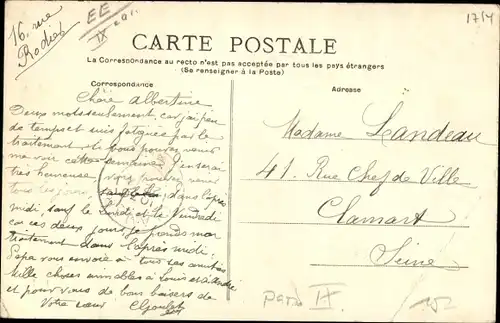 16, rue
Rodier
EE
IX
1714
CARTE POSTALE
La Correspondance au recto n'est pas acceptée par tous les pays étrangers
(Se renseigner à la Poste)
Correspondance
Adresse
Chère Albertine
Deux mots seulement car j'ai peu
de temps et suis fatiguée par le
traitement si vous pouvez venir
me voir cette semaine j'en serai
très heureuse, vous pouvez venir
tous les jours dans l'après
midi, sauf le lundi et le vendredi
car ces deux jours je prends mon
traitement dans l'après midi.
Papa vous envoie à tous ses amitiés
Mille choses aimables à Louis et
et pour vous de bons baisers de
Votre sœur
Madame Landeau
41 Rue Chef de Ville
Clamart
Seine
Paris IX